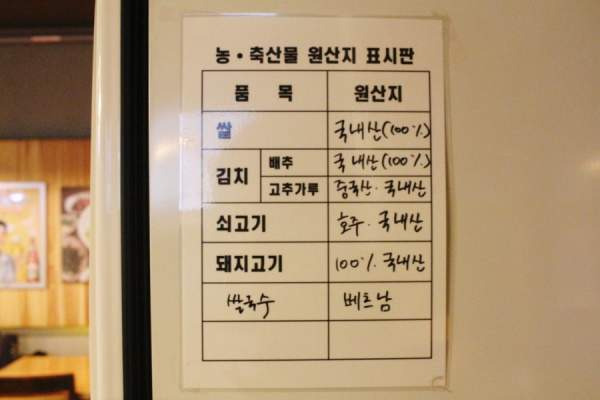 농·축산물 원산지 표시판
품 목 원산지
쌀 국내산(100%)
김치 배추 국내산(100%)
고추가루 중국산·국내산
쇠고기 호주·국내산
돼지고기 100% 국내산
쌀국수 베트남